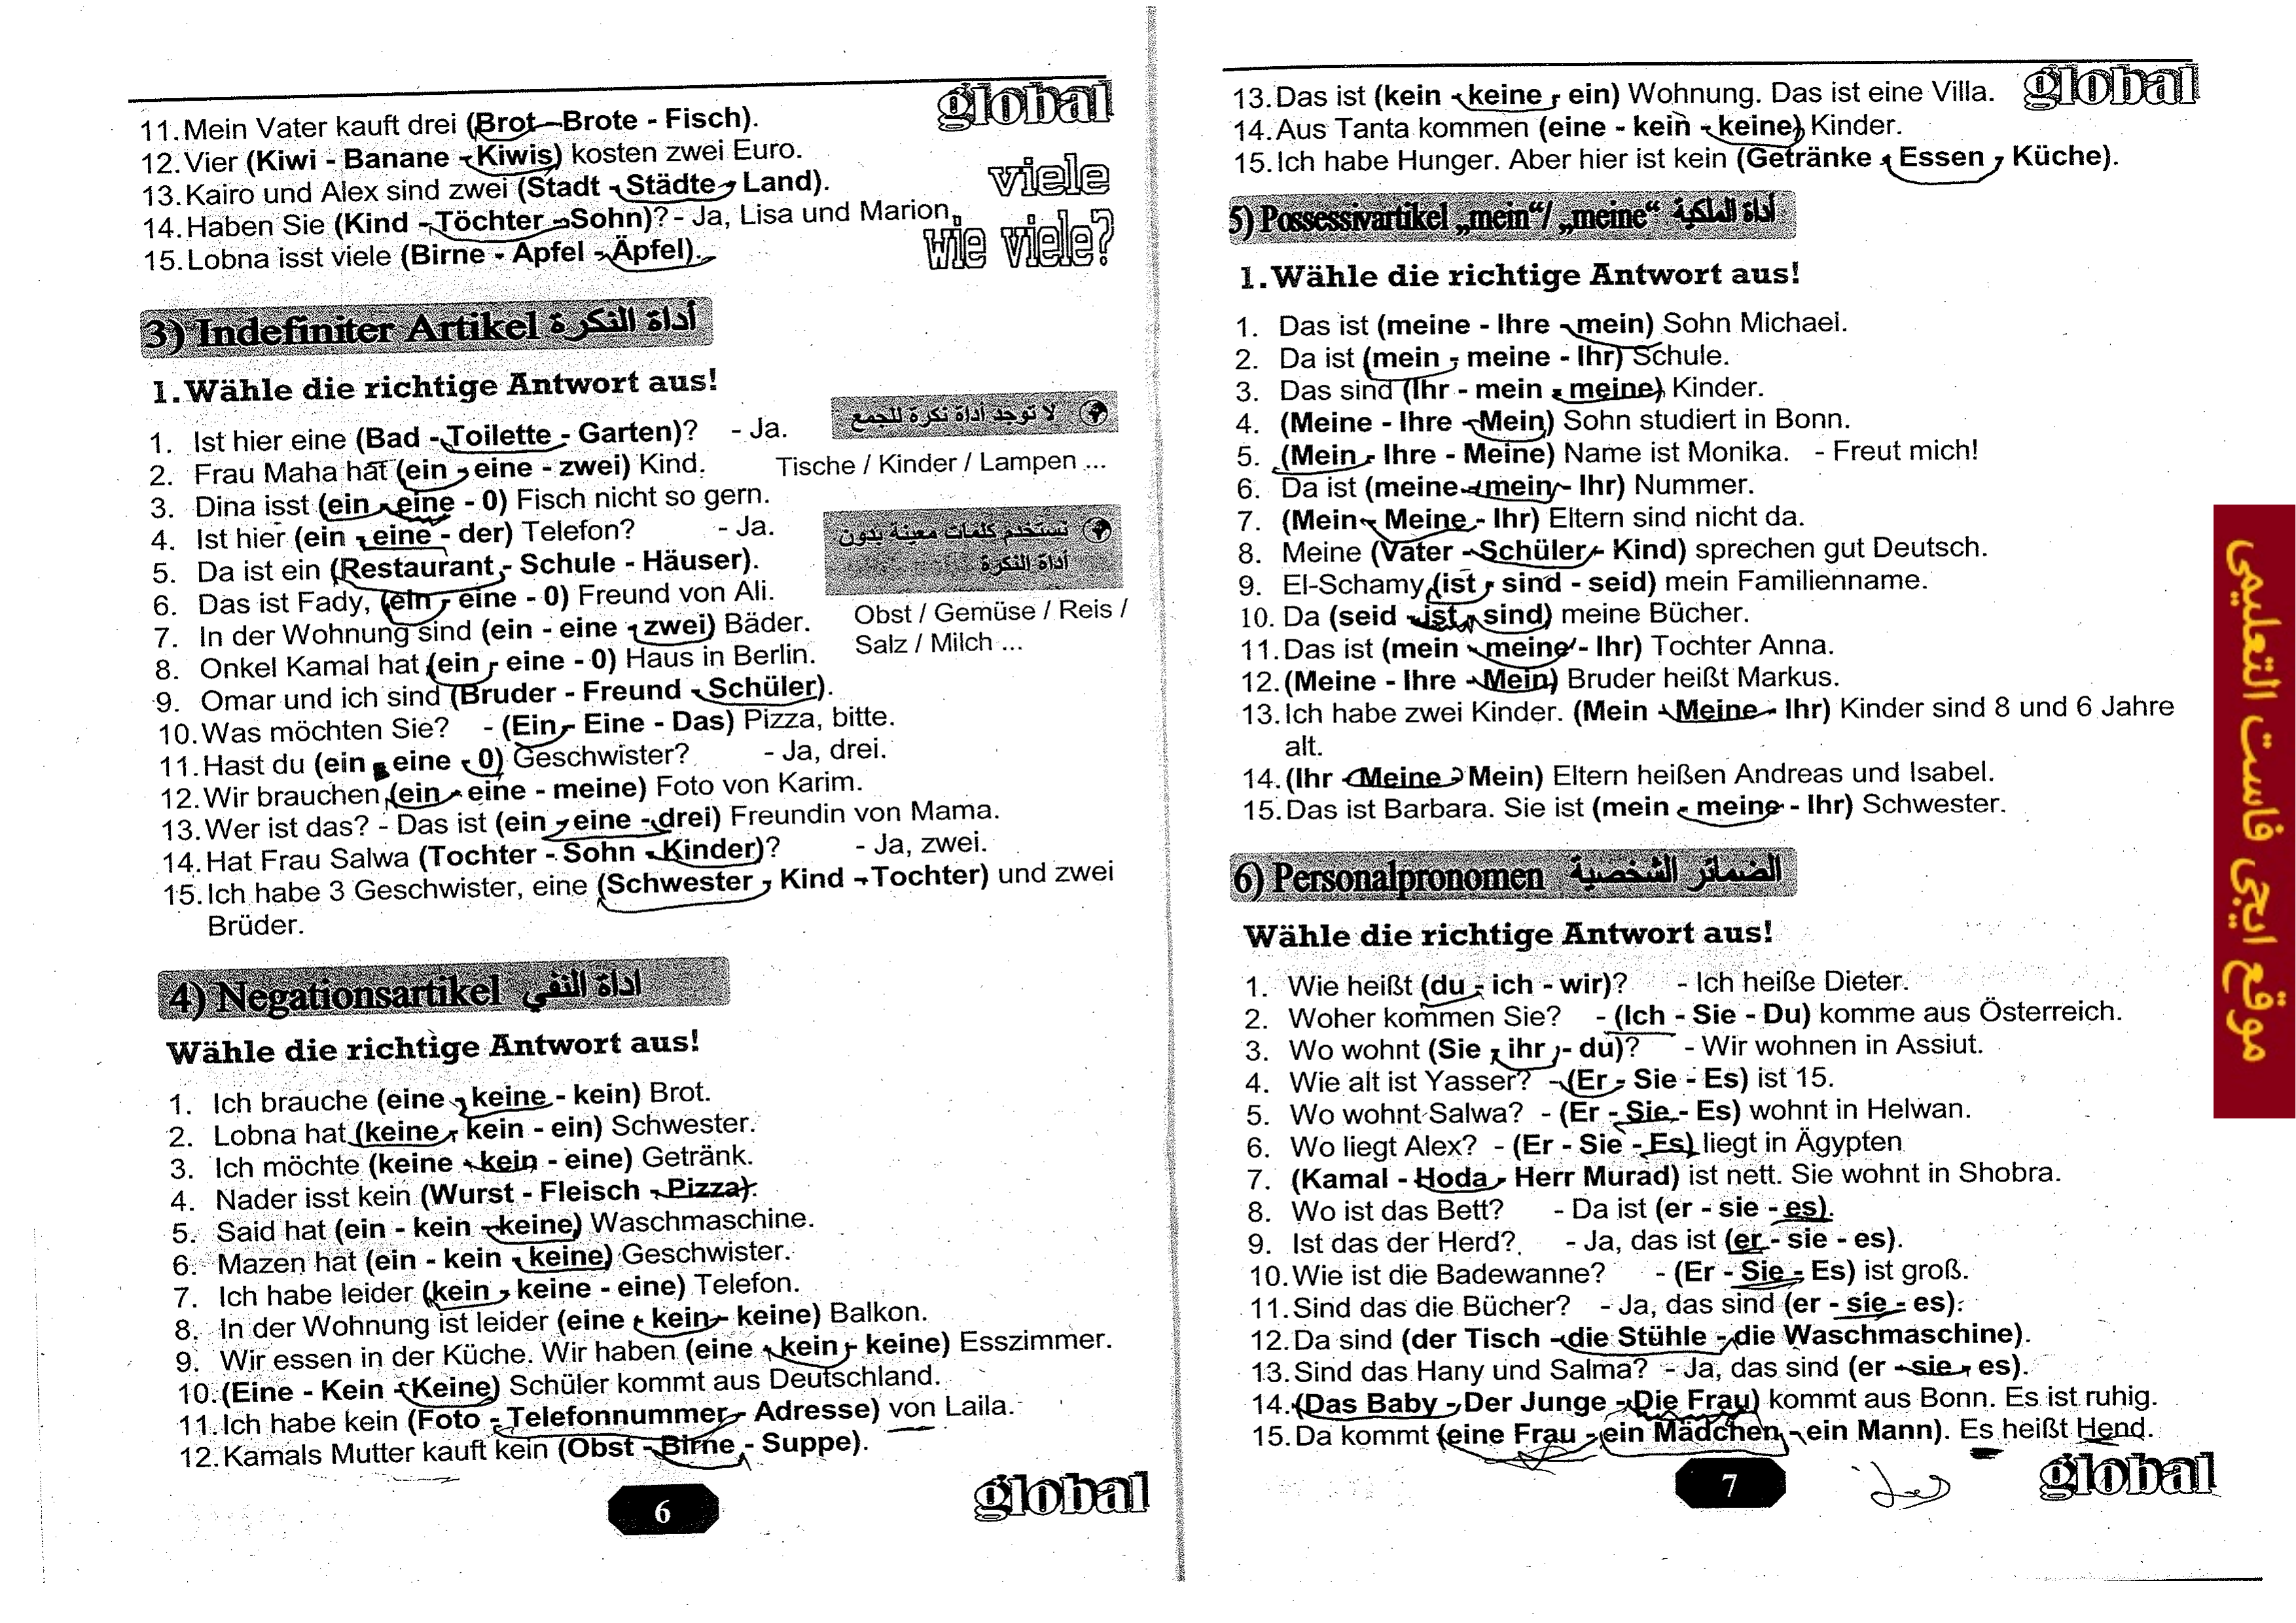 global
11.Mein Vater kauft drei (Brot - Brote - Fisch).
12.Vier (Kiwi - Banane - Kiwis) kosten zwei Euro.
13.Kairo und Alex sind zwei (Stadt - Städte - Land).
14.Haben Sie (Kind - Töchter - Sohn)? - Ja, Lisa und Marion.
15.Lobna isst viele (Birne - Apfel - Äpfel).
viele
wie viele?
3) Indefiniter Artikel أداة النكرة
1.Wähle die richtige Antwort aus!
1. Ist hier eine (Bad - Toilette - Garten)? - Ja.
2. Frau Maha hat (ein - eine - zwei) Kind.
3. Dina isst (ein - eine - 0) Fisch nicht so gern.
4. Ist hier (ein - eine - der) Telefon? - Ja.
5. Da ist ein (Restaurant - Schule - Häuser).
6. Das ist Fady, (ein - eine - 0) Freund von Ali.
7. In der Wohnung sind (ein - eine - zwei) Bäder.
8. Onkel Kamal hat (ein - eine - 0) Haus in Berlin.
9. Omar und ich sind (Bruder - Freund - Schüler).
10.Was möchten Sie? - (Ein - Eine - Das) Pizza, bitte.
11.Hast du (ein - eine - 0) Geschwister? - Ja, drei.
12.Wir brauchen (ein - eine - meine) Foto von Karim.
13.Wer ist das? - Das ist (ein - eine - drei) Freundin von Mama.
14.Hat Frau Salwa (Tochter - Sohn - Kinder)? - Ja, zwei.
15.Ich habe 3 Geschwister, eine (Schwester - Kind - Tochter) und zwei
Brüder.
لا توجد أداة نكرة للجمع
Tische / Kinder / Lampen ...
تستخدم كلمات معينة بدون
أداة النكرة
Obst / Gemüse / Reis /
Salz / Milch ...
4) Negationsartikel اداة النفي
Wähle die richtige Antwort aus!
1. Ich brauche (eine - keine - kein) Brot.
2. Lobna hat (keine - kein - ein) Schwester.
3. Ich möchte (keine - kein - eine) Getränk.
4. Nader isst kein (Wurst - Fleisch - Pizza).
5. Said hat (ein - kein - keine) Waschmaschine.
6. Mazen hat (ein - kein - keine) Geschwister.
7. Ich habe leider (kein - keine - eine) Telefon.
8. In der Wohnung ist leider (eine - kein - keine) Balkon.
9. Wir essen in der Küche. Wir haben (eine - kein - keine) Esszimmer.
10.(Eine - Kein - Keine) Schüler kommt aus Deutschland.
11.Ich habe kein (Foto - Telefonnummer - Adresse) von Laila.
12.Kamals Mutter kauft kein (Obst - Birne - Suppe).
6
global
global
13.Das ist (kein - keine - ein) Wohnung. Das ist eine Villa.
14.Aus Tanta kommen (eine - kein - keine) Kinder.
15.Ich habe Hunger. Aber hier ist kein (Getränke - Essen - Küche).
5) Possessivartikel „mein“/ „meine“ أداة الملكية
1.Wähle die richtige Antwort aus!
1. Das ist (meine - Ihre - mein) Sohn Michael.
2. Da ist (mein - meine - Ihr) Schule.
3. Das sind (Ihr - mein - meine) Kinder.
4. (Meine - Ihre - Mein) Sohn studiert in Bonn.
5. (Mein - Ihre - Meine) Name ist Monika. - Freut mich!
6. Da ist (meine - mein - Ihr) Nummer.
7. (Mein - Meine - Ihr) Eltern sind nicht da.
8. Meine (Vater - Schüler - Kind) sprechen gut Deutsch.
9. El-Schamy (ist - sind - seid) mein Familienname.
10. Da (seid - ist - sind) meine Bücher.
11.Das ist (mein - meine - Ihr) Tochter Anna.
12.(Meine - Ihre - Mein) Bruder heißt Markus.
13.Ich habe zwei Kinder. (Mein - Meine - Ihr) Kinder sind 8 und 6 Jahre
alt.
14.(Ihr - Meine - Mein) Eltern heißen Andreas und Isabel.
15.Das ist Barbara. Sie ist (mein - meine - Ihr) Schwester.
6) Personalpronomen الضمائر الشخصية
Wähle die richtige Antwort aus!
1. Wie heißt (du - ich - wir)? - Ich heiße Dieter.
2. Woher kommen Sie? - (Ich - Sie - Du) komme aus Österreich.
3. Wo wohnt (Sie - ihr - du)? - Wir wohnen in Assiut.
4. Wie alt ist Yasser? - (Er - Sie - Es) ist 15.
5. Wo wohnt Salwa? - (Er - Sie - Es) wohnt in Helwan.
6. Wo liegt Alex? - (Er - Sie - Es) liegt in Ägypten
7. (Kamal - Hoda - Herr Murad) ist nett. Sie wohnt in Shobra.
8. Wo ist das Bett? - Da ist (er - sie - es).
9. Ist das der Herd? - Ja, das ist (er - sie - es).
10.Wie ist die Badewanne? - (Er - Sie - Es) ist groß.
11.Sind das die Bücher? - Ja, das sind (er - sie - es).
12.Da sind (der Tisch - die Stühle - die Waschmaschine).
13.Sind das Hany und Salma? - Ja, das sind (er - sie - es).
14.(Das Baby - Der Junge - Die Frau) kommt aus Bonn. Es ist ruhig.
15.Da kommt (eine Frau - ein Mädchen - ein Mann). Es heißt Hend.
7
global
موقع ايجى فاست التعليمى